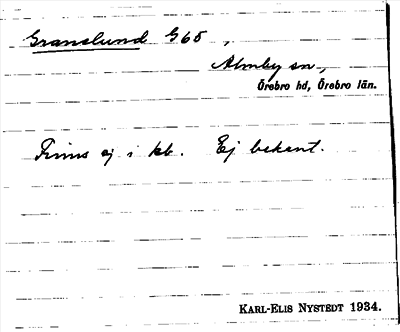 Granslund G65,
Almby sn.,
Örebro hd, Örebro län.
Finns ej i kb. Ej bekant.
KARL-ELIS NYSTEDT 1934.